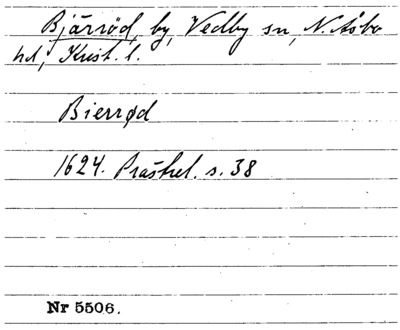 Bjärröd, by, Vedby sn, N. Åsbo
hd, Krist. l.
Bierrød
1624. Prästrel. s. 38
Nr 5506.